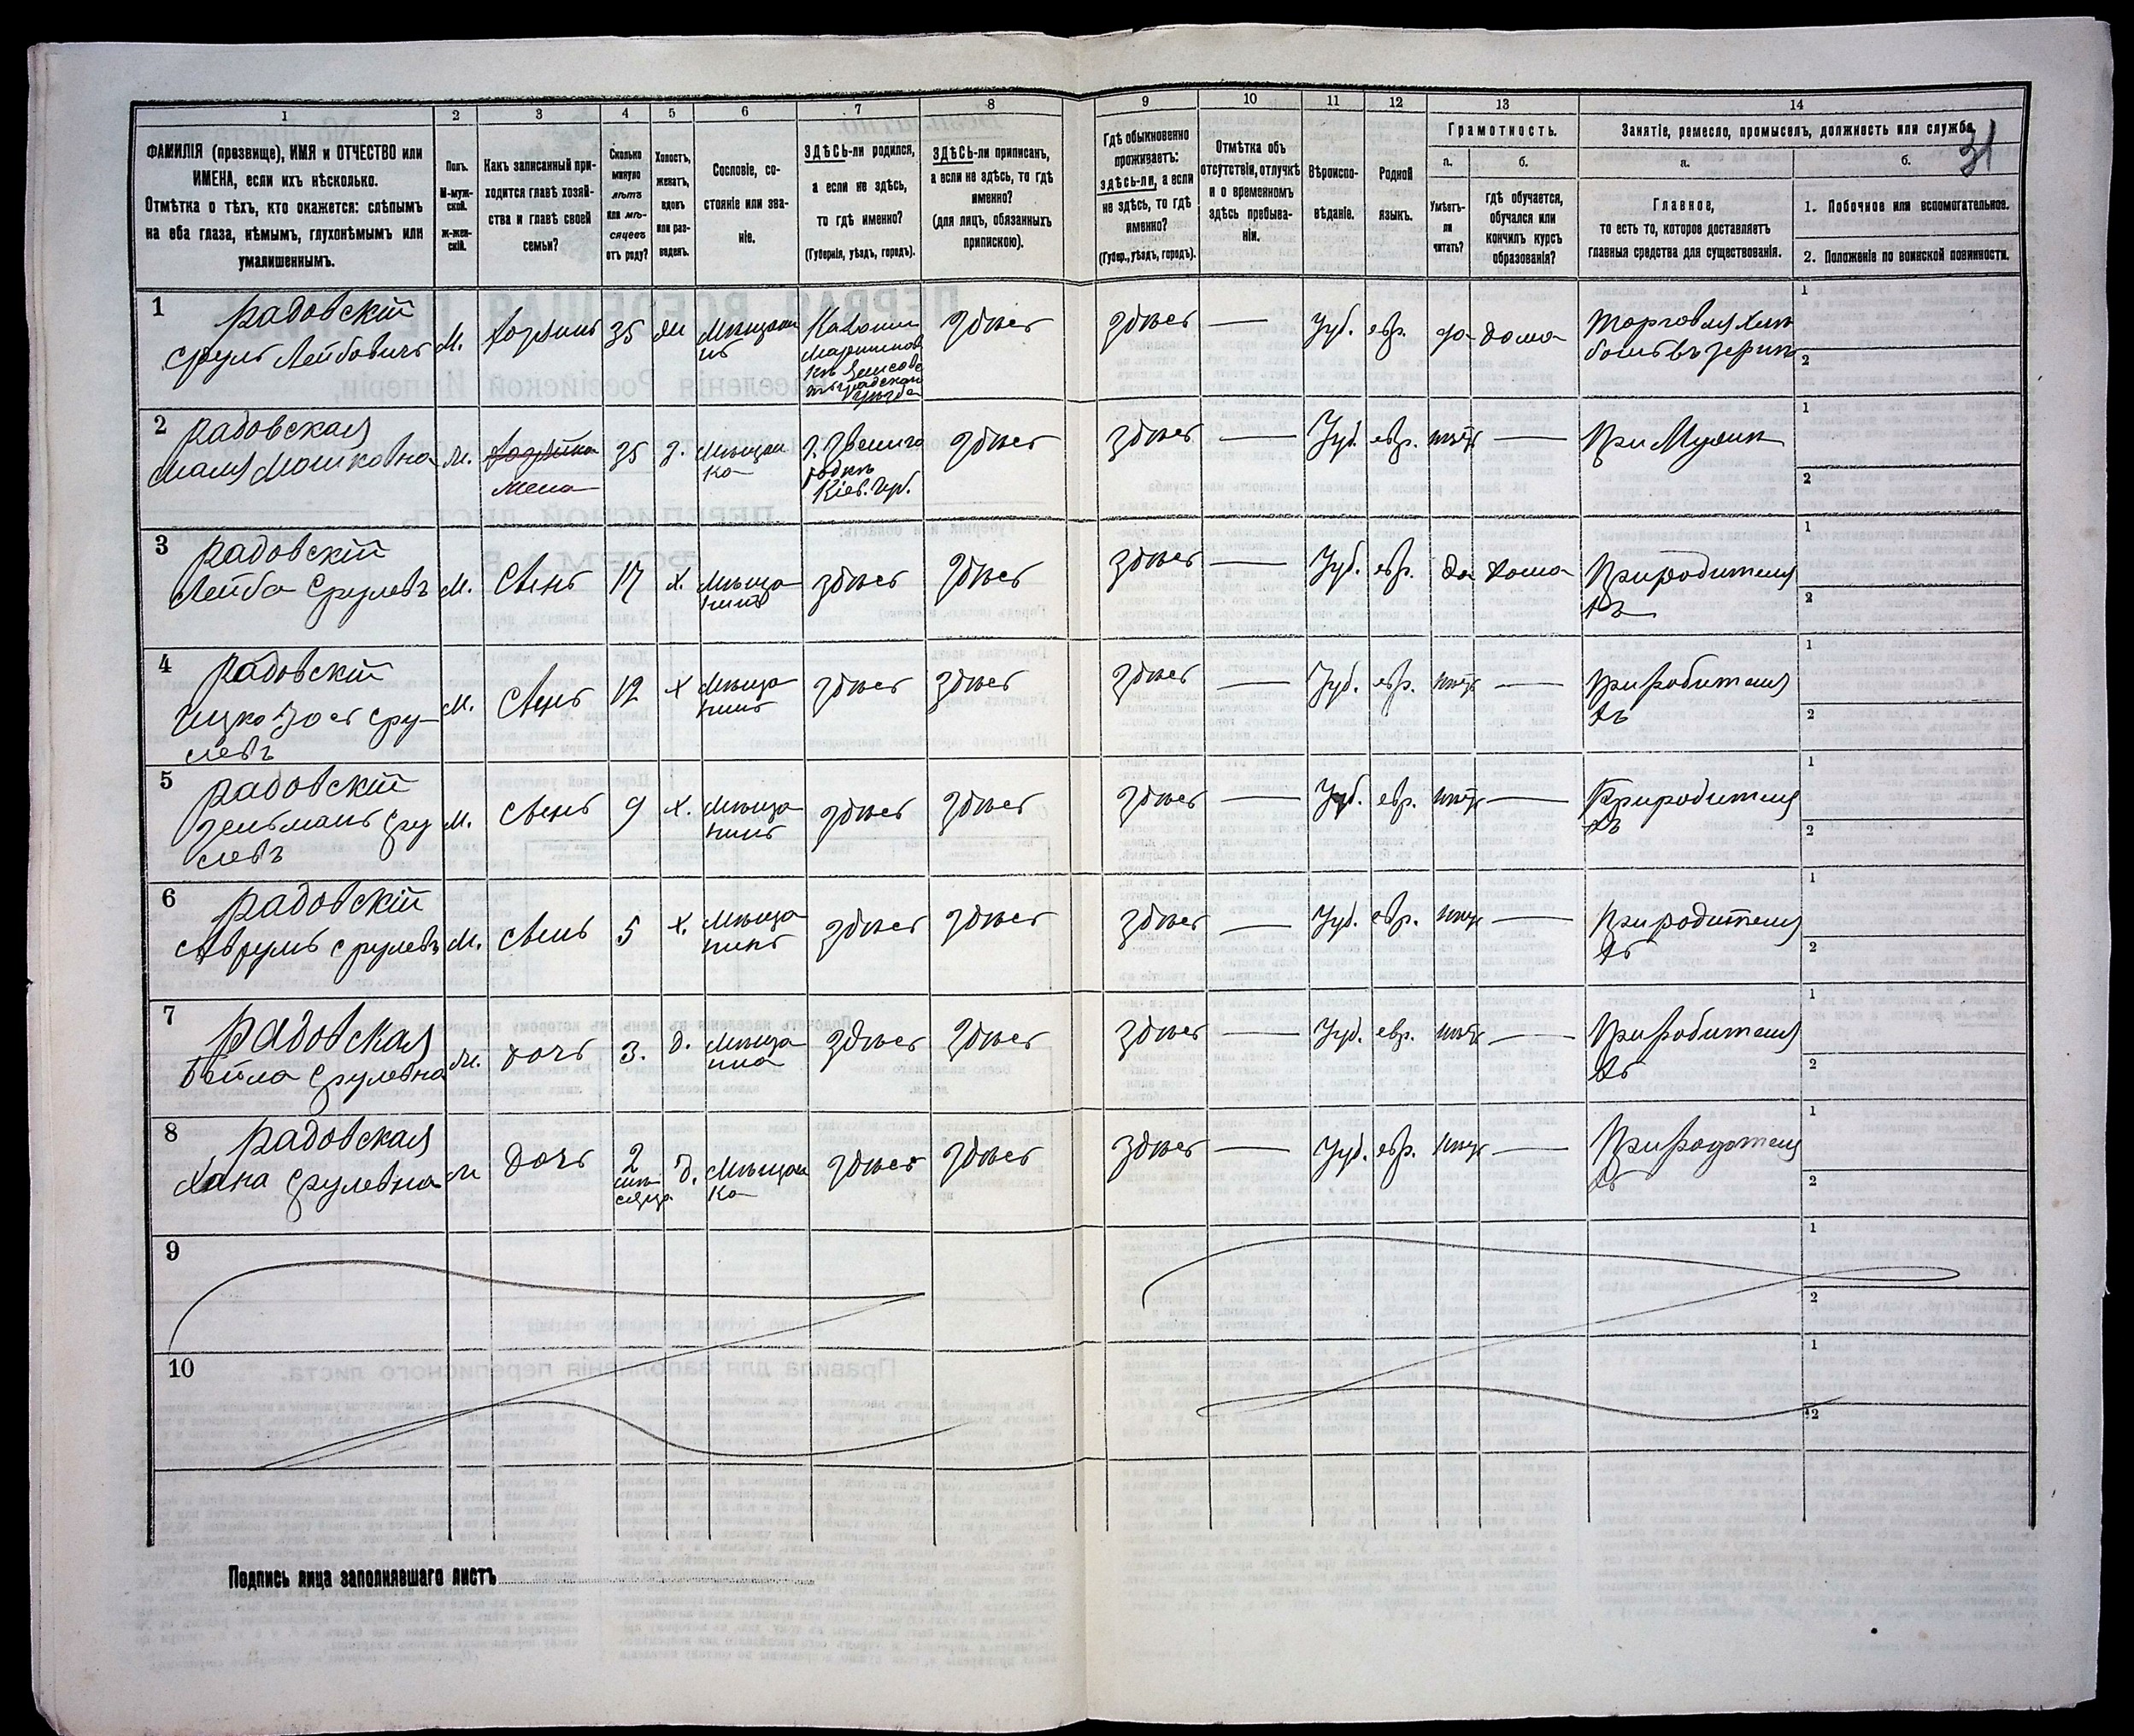 1 2 3 4 5 6 7 8 9 10 11 12 13 14
31
ФАМИЛІЯ (прозвище), ИМЯ и ОТЧЕСТВО или
ИМЕНА, если ихъ нѣсколько.
Отмѣтка о тѣхъ, кто окажется: слѣпымъ
на оба глаза, нѣмымъ, глухонѣмымъ или
умалишеннымъ.
Полъ.
М-муж-
ской.
Ж-жен-
скій.
Какъ записанный при-
ходится главѣ хозяй-
ства и главѣ своей
семьи?
Сколько
минуло
лѣтъ
или мѣ-
сяцевъ
отъ роду?
Холостъ,
женатъ,
вдовъ
или раз-
веденъ.
Сословіе, со-
стояніе или зва-
ніе.
ЗДѢСЬ-ли родился,
а если не здѣсь,
то гдѣ именно?
(Губернія, уѣздъ, городъ).
ЗДѢСЬ-ли приписанъ,
а если не здѣсь, то гдѣ
именно?
(для лицъ, обязанныхъ
припискою).
Гдѣ обыкновенно
проживаетъ:
здѣсь-ли, а если
не здѣсь, то гдѣ
именно?
(Губер., уѣздъ, городъ).
Отмѣтка объ
отсутствіи, отлучкѣ
и о временномъ
здѣсь пребыва-
ніи.
Вѣроиспо-
вѣданіе.
Родной
языкъ.
Грамотность.
а.
Умѣетъ-
ли
читать?
б.
гдѣ обучается,
обучался или
кончилъ курсъ
образованія?
Занятіе, ремесло, промыселъ, должность или служба.
а.
Главное,
то есть то, которое доставляетъ
главныя средства для существованія.
б.
1. Побочное или вспомогательное.
2. Положеніе по воинской повинности.
1 Радовскій
Сруль Лейбовичъ М. хозяинъ 35 здѣсь здѣсь — Іуд. евр. да дома Торговля
1
2
2 Радовская
Мошковна М. жена 35 з. Мѣщан
ка г. Звениго
родкѣ
Кіев. губ. здѣсь здѣсь — Іуд. евр. нѣтъ — При Мужѣ
1
2
3 Радовскій
Лейба Срулевъ М. Сынъ 17 х. Мѣща
нинъ здѣсь здѣсь здѣсь — Іуд. евр. да дома При родителя
хъ
1
2
4 Радовскій
Ицко Сру-
левъ М. Сынъ 12 х Мѣща
нинъ здѣсь здѣсь здѣсь — Іуд. евр. нѣтъ — При родителя
хъ
1
2
5 Радовскій
Зельманъ Сру
левъ М. Сынъ 9 х. Мѣща
нинъ здѣсь здѣсь здѣсь — Іуд. евр. нѣтъ — При родителя
хъ
1
2
6 Радовскій
Аврумъ Срулевъ М. Сынъ 5 х. Мѣща
нинъ здѣсь здѣсь здѣсь — Іуд. евр. нѣтъ — При родителя
хъ
1
2
7 Радовская
Бейла Срулевна М. дочь 3. д. здѣсь здѣсь здѣсь — Іуд. евр. нѣтъ — При родителя
хъ
1
2
8 Радовская
Хана Срулевна М дочь 2
мѣ
сяца д. Мѣщан
ка здѣсь здѣсь здѣсь — Іуд. евр. нѣтъ — При родителя
хъ
1
2
9
1
2
10
1
2
Подпись лица заполнявшаго листъ